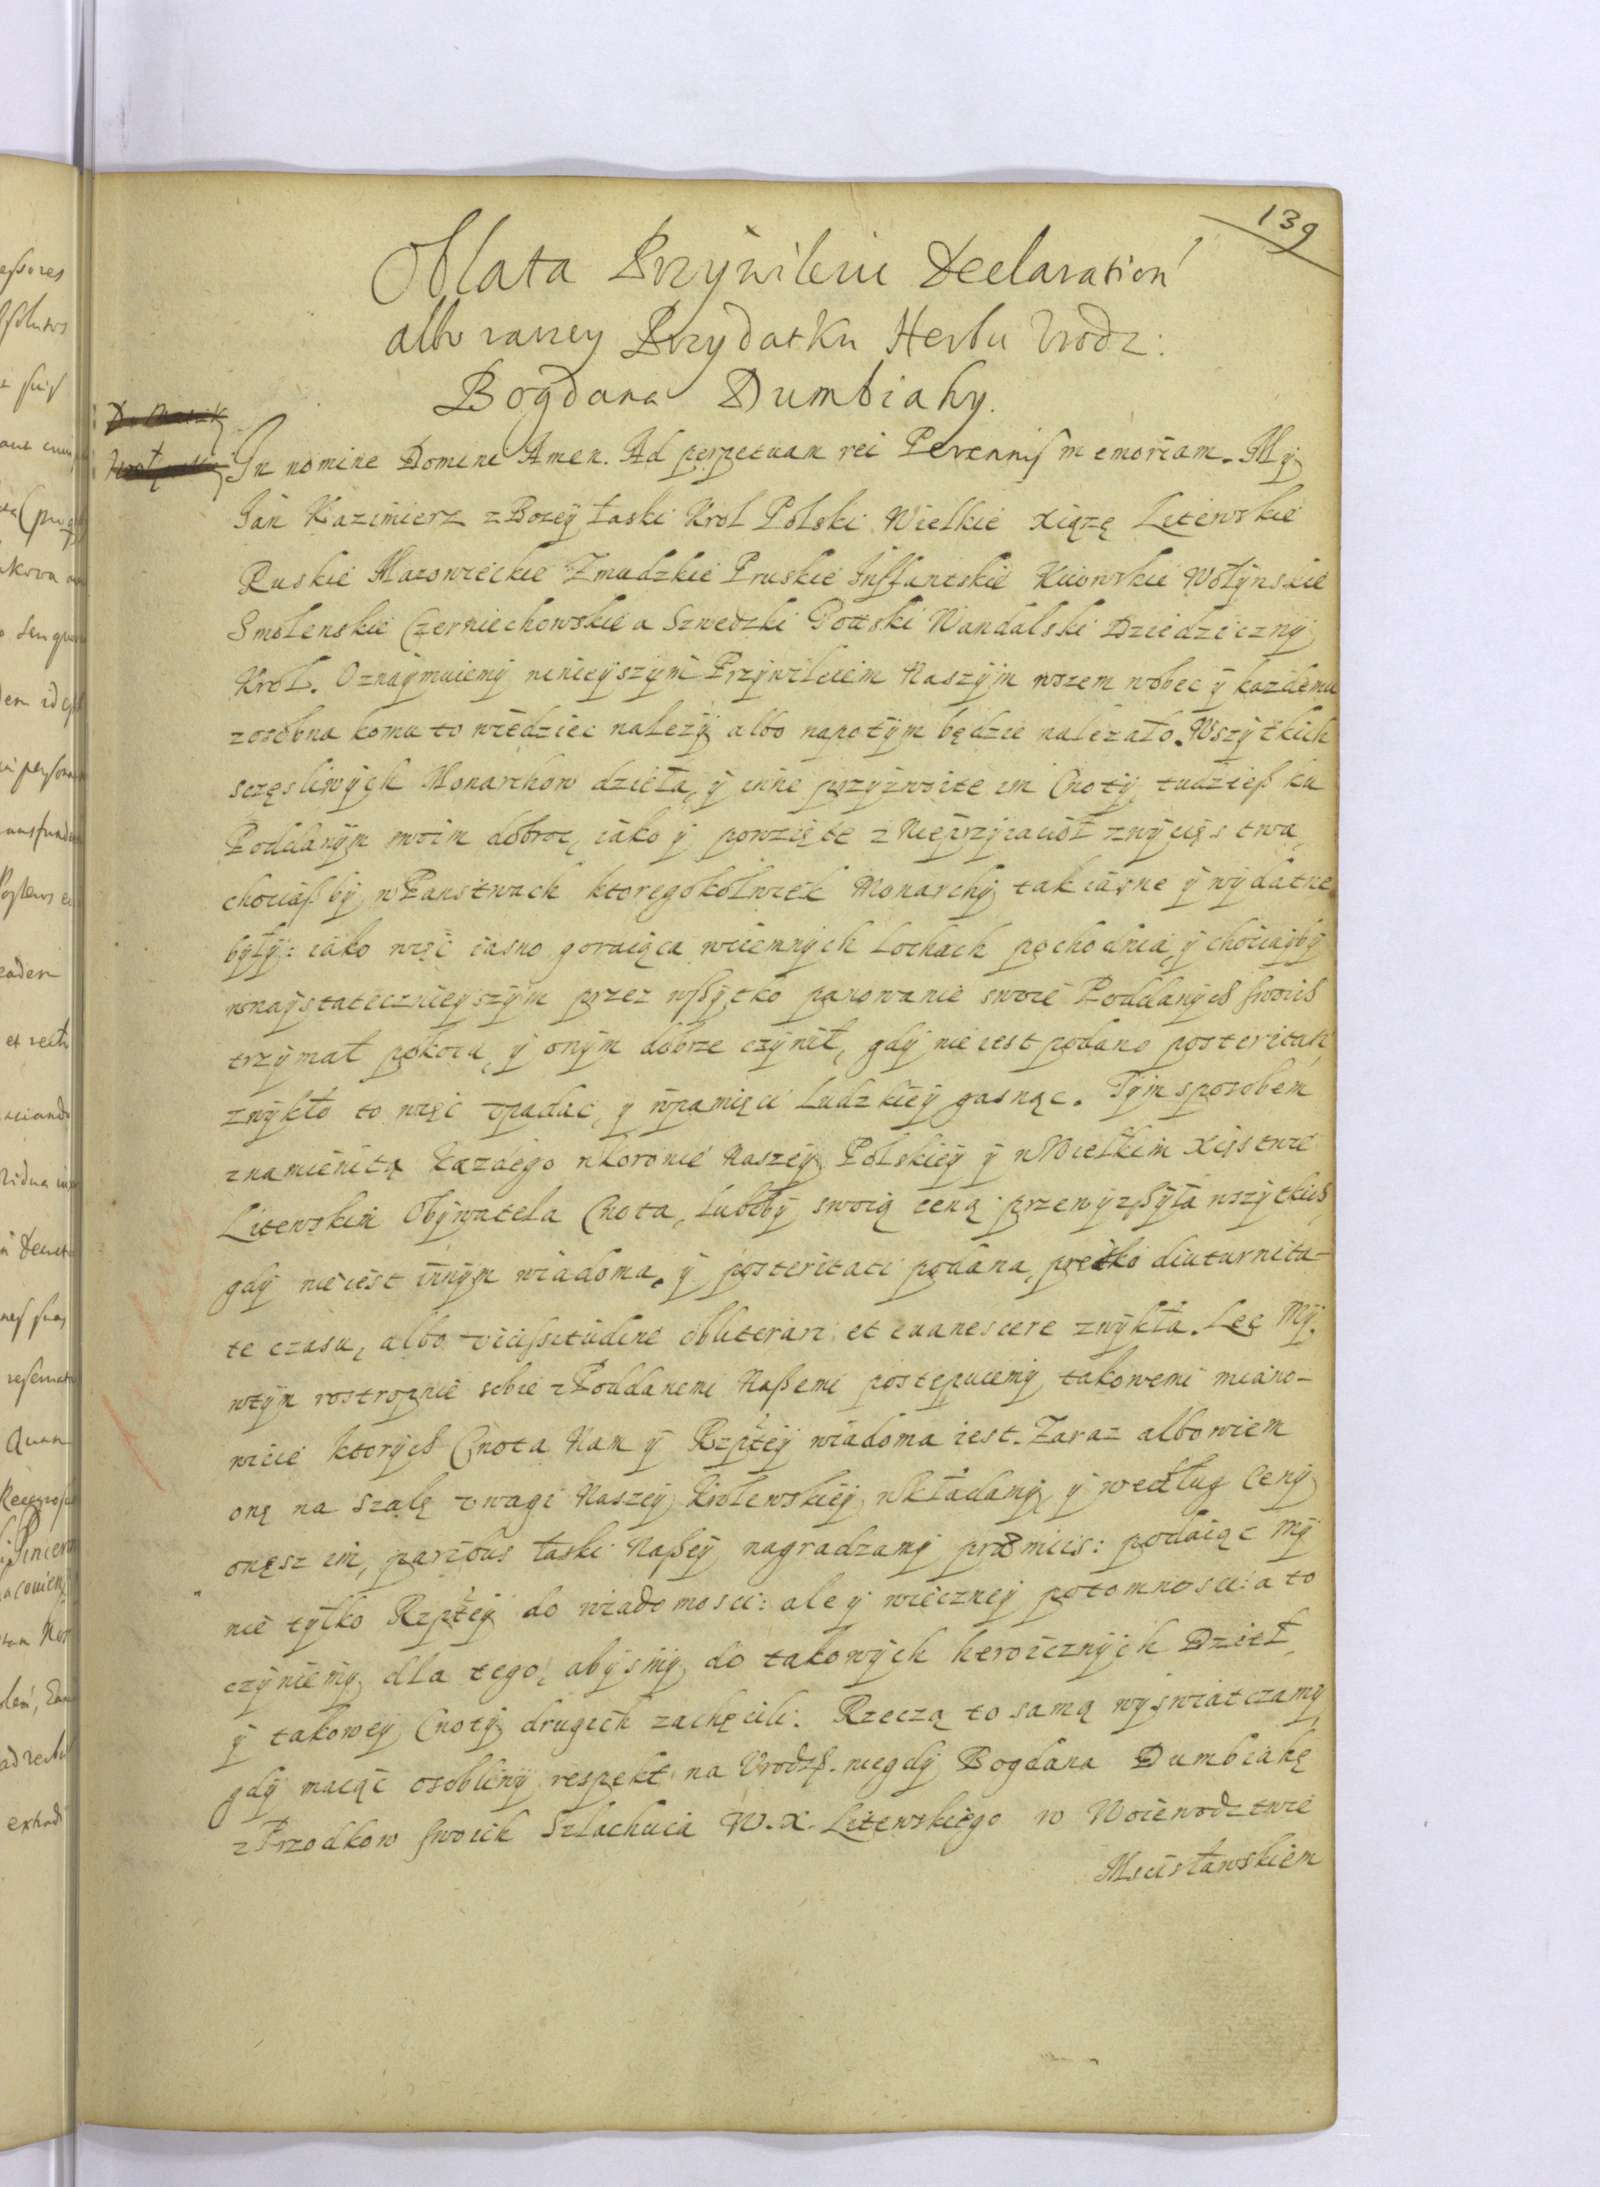 139
Oblata Przywileiu Declaration
albo raczey Przydatku Herbu Vrodz:
Bogdana Dumbiahy.
In nomine Domini Amen. Ad perpetuam rei Perennis memoriam. My
Jan Kazimierz z Bozey łaski Krol Polski Wielkie Xiązę Litewskie
Ruskie Mazowieckie Zmudzkie Pruskie Inflantskie Kiiowskie Wołynskie
Smolenskie Czerniechowskie a Szwedzki Gottski Wandalski Dziedziczny
Krol. Oznaymuiemy ninieyszym Przywileiem Naszym wszem wobec y kazdemu
zosobna komu to wiedziec nalezy albo napotym będzie nalezało. Wszytkich
sczęsliwych Monarchow dzieła, y inne przyzwoite im Cnoty tudziesz ku
Poddanym swoim dobroc, iako y powzięte z Nieprzyiacioł zwycięstwa,
chociaszby w Panstwach ktoregokolwiek Monarchy tak iasne y wydatne
były: iako więc iasno goraiąca wciemnych Lochach pochodnia, y chociayby
wnaystatecznieyszym przez wszytko panowanie swoie Poddanych swoich
trzymał pokoiu, y onym dobrze czynił, gdy nie iest podano posteritati
zwykło to więc vpadac, y wpamięci Ludzkiey gasnąc. Tym sposobem
znamienita kazdego w Koronie Naszey Polskiey y w Wielkim Xięstwie
Litewskim Obywatela Cnota, luboby swoią ceną przewyzszyła wszytkich,
gdy nie iest innym wiadoma, y posteritati podana, prętko diuturnita-
te czasu, albo vicissitudine obliterari et euanescere zwykła. Lec My
wtym rostropnie sobie z Poddanemi Naszemi postępuiemy takowemi miano-
wicie ktorych Cnota Nam y Rzptey wiadoma iest. Zaraz albowiem
onę na szalę vwagi Naszey Krolewskiey wkładamy y według Ceny
onęsz im, paribus łaski Naszey nagradzamy præmiis: podaiąc my
nie tylko Rzptey do wiadomosci: ale y wieczney potomnosci: a to
czyniemy dla tego, abysmy do takowych heroicznych Dzieł,
y takowey Cnoty drugich zachęcili. Rzeczą to samą wyswiatczamy
gdy maiąc osobliwy respekt na Vrodz. niegdy Bogdana Dumbiahę
z Przodkow swoich Szlachcica W. X. Litewskiego w Woiewodztwie
Mscisławskiem